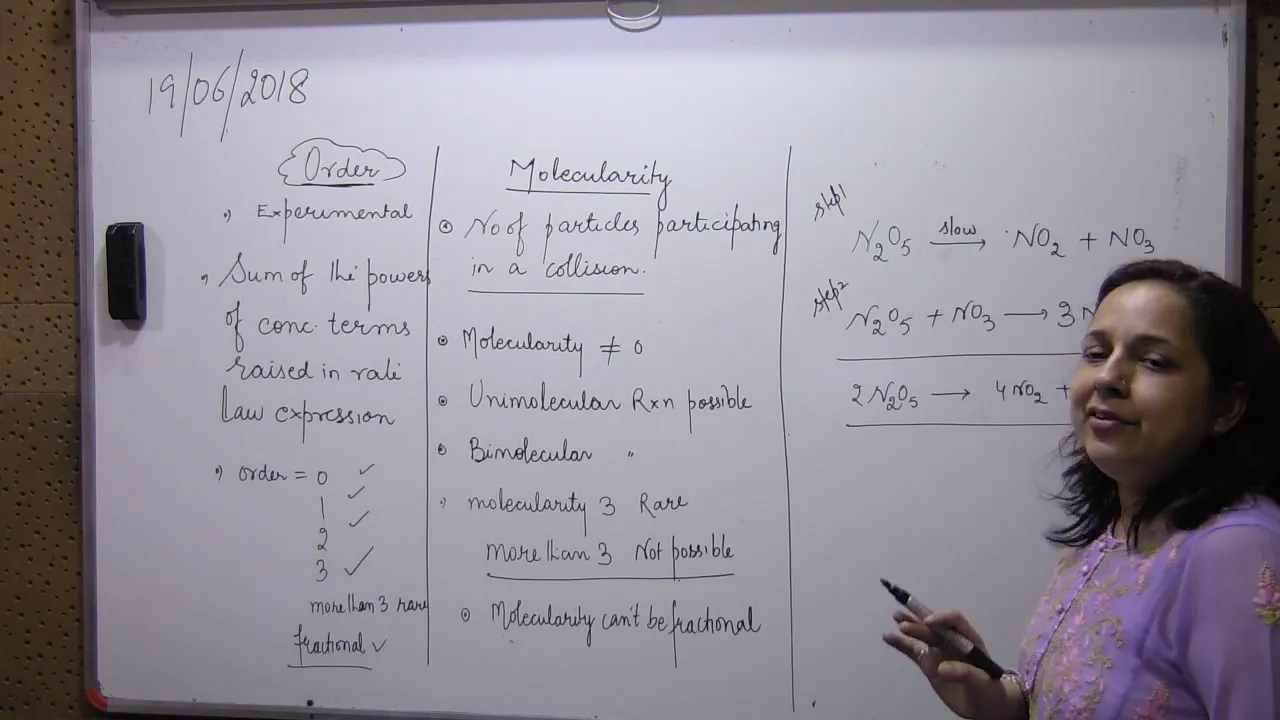 19/06/2018
Order
Experimental
Sum of the powers
of conc. terms
raised in rate
law expression
order = 0 ✓
1 ✓
2 ✓
3 ✓
more than 3 rare
fractional ✓
Molecularity
No of particles participating
in a collision.
Molecularity ≠ 0
Unimolecular Rxn possible
Bimolecular "
molecularity 3 Rare
more than 3 Not possible
Molecularity can't be fractional
step 1
N₂O₅ slow → NO₂ + NO₃
step 2
N₂O₅ + NO₃ → 3 N
2 N₂O₅ → 4 NO₂ +